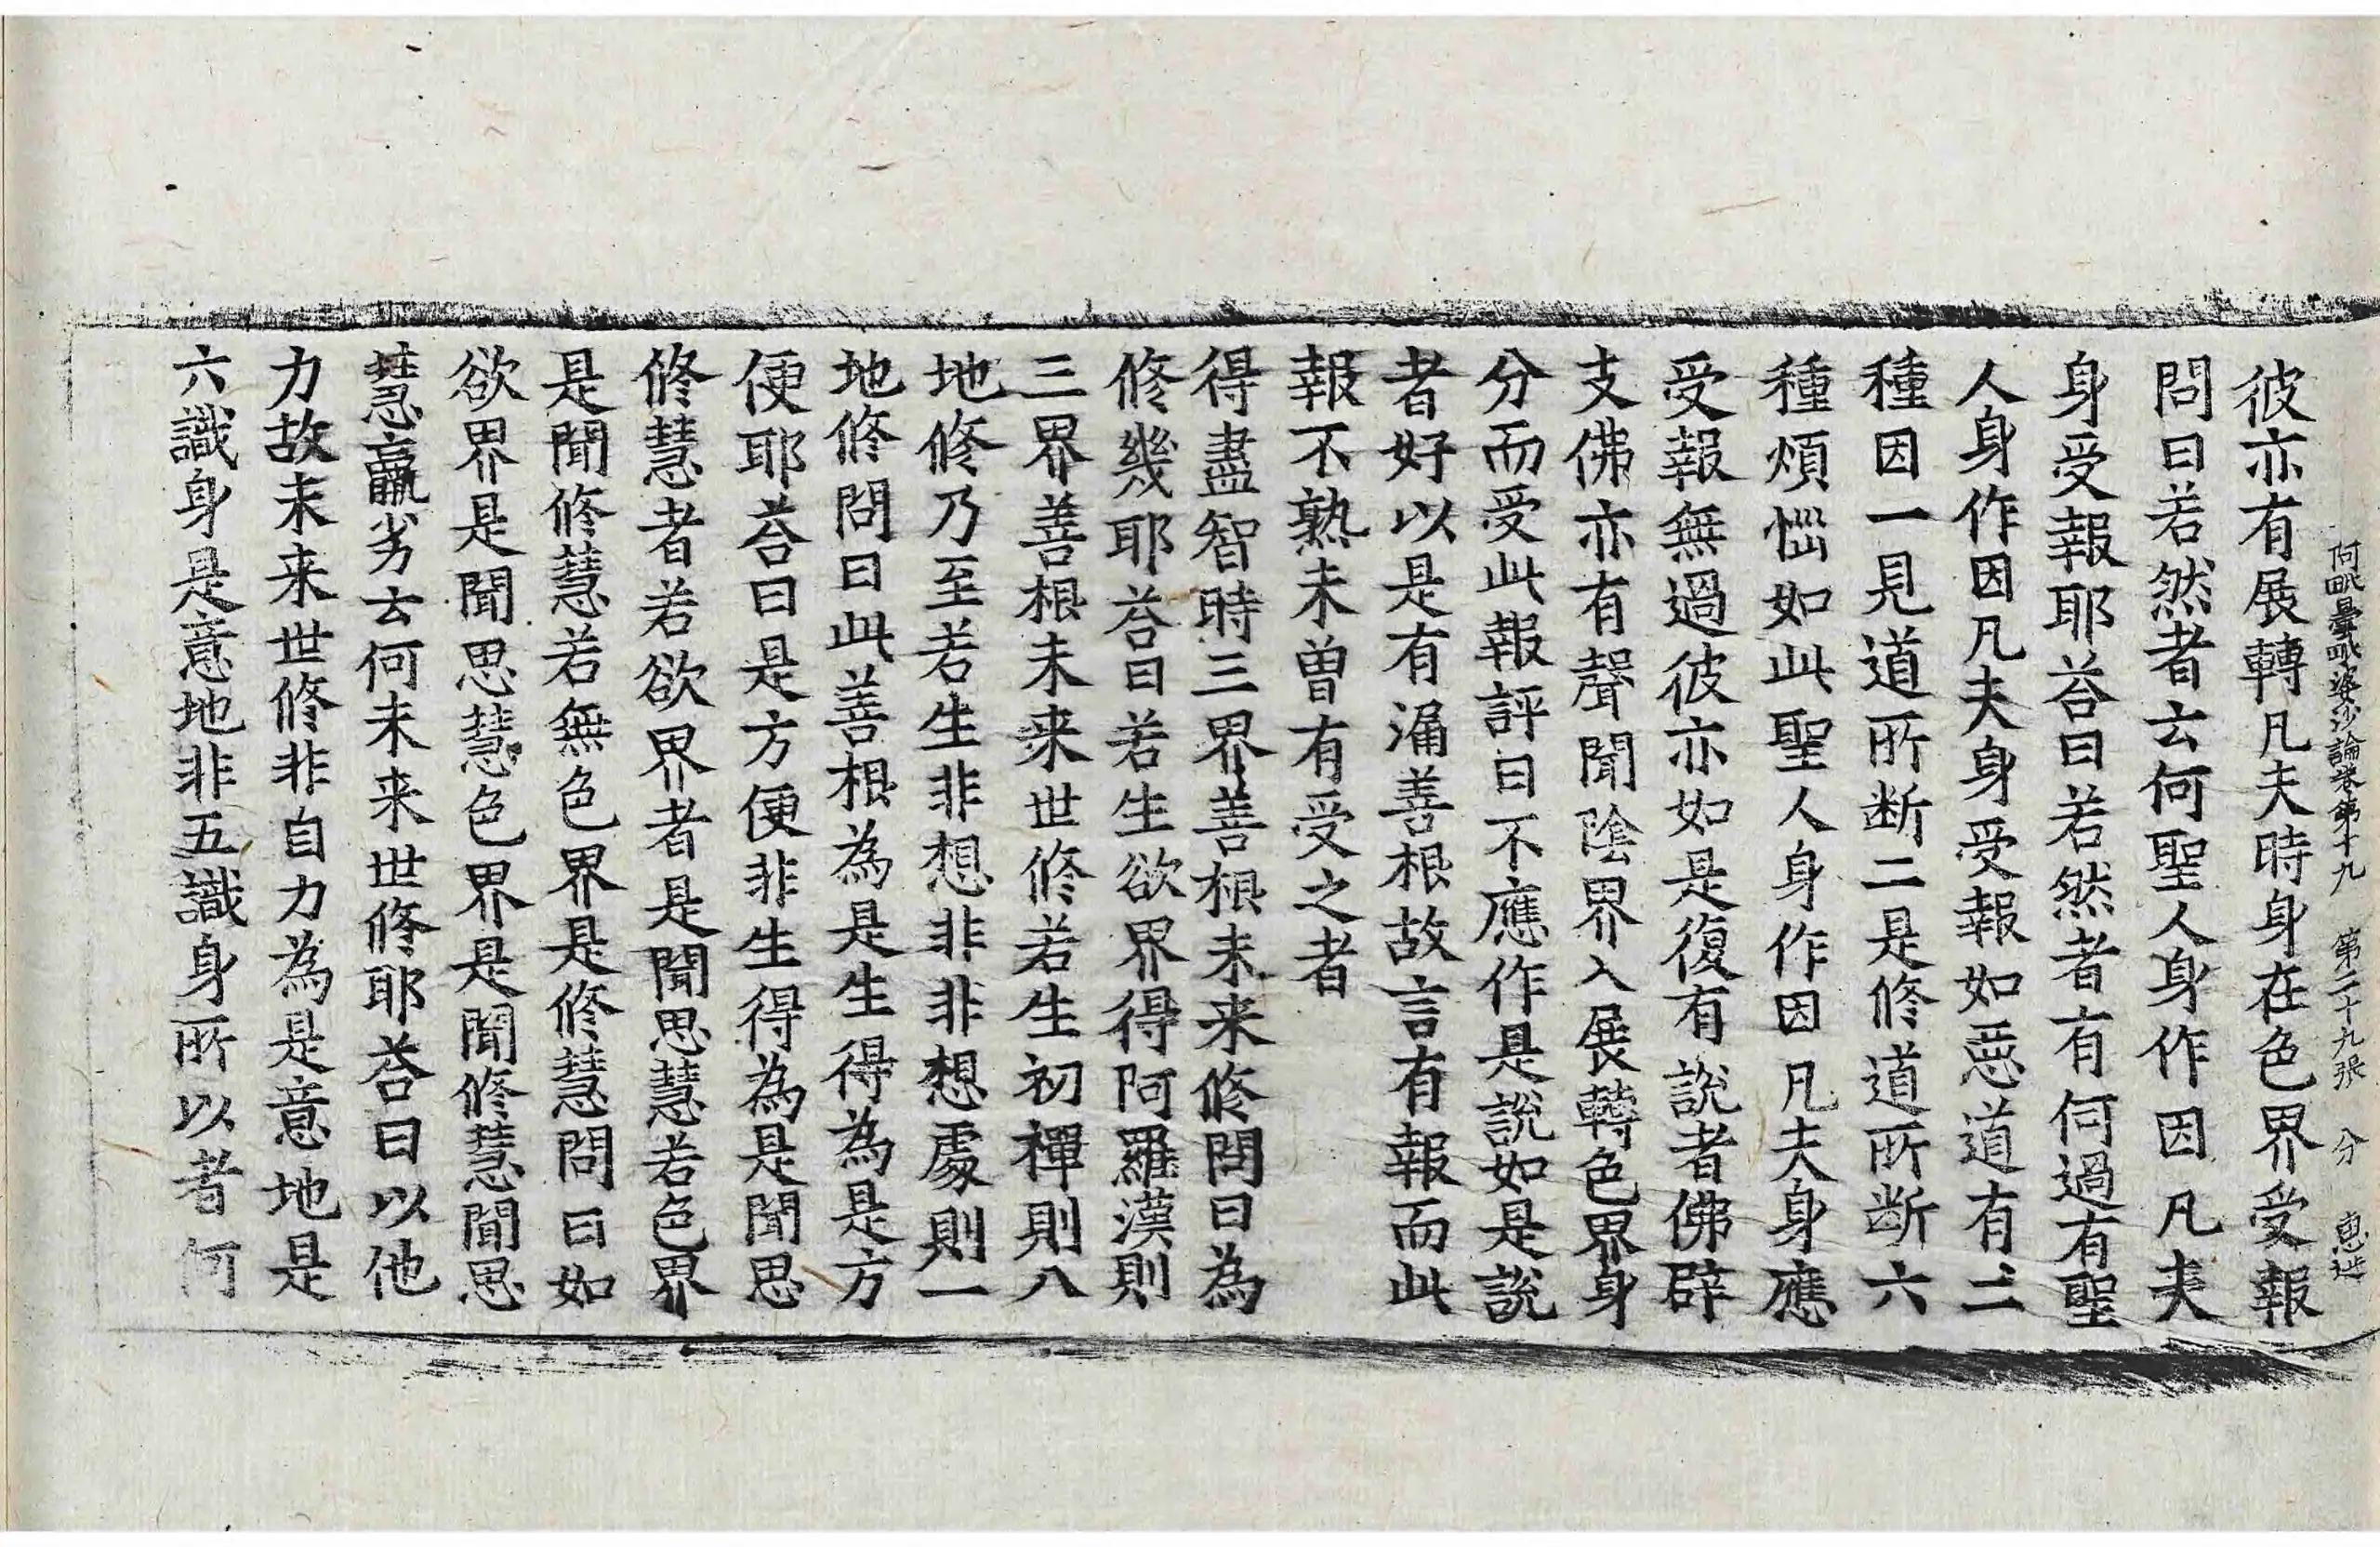 阿毗曇毗婆沙論卷第十九 第二十九張 分
彼亦有展轉凡夫時身在色界受報
問曰若然者云何聖人身作因凡夫
身受報耶荅曰若然者有何過有聖
人身作因凡夫身受報如惡道有二
種因一見道所断二是修道所断六
種煩惱如此聖人身作因凡夫身應
受報無過彼亦如是復有說者佛辟
支佛亦有聲聞陰界入展轉色界身
分而受此報評曰不應作是說如是說
者好以是有漏善根故言有報而此
報不熟未曾有受之者
得盡智時三界善根未来修問曰為
修幾耶荅曰若生欲界得阿羅漢則
三界善根未来世修若生初禪則八
地修乃至若生非想非非想處則一
地修問曰此善根為是生得為是方
便耶荅曰是方便非生得為是聞思
修慧者若欲界者是聞思慧若色界
是聞修慧若無色界是修慧問曰如
欲界是聞思慧色界是聞修慧聞思
慧羸劣云何未来世修耶荅曰以他
力故未来世修非自力為是意地是
六識身是意地非五識身所以者何